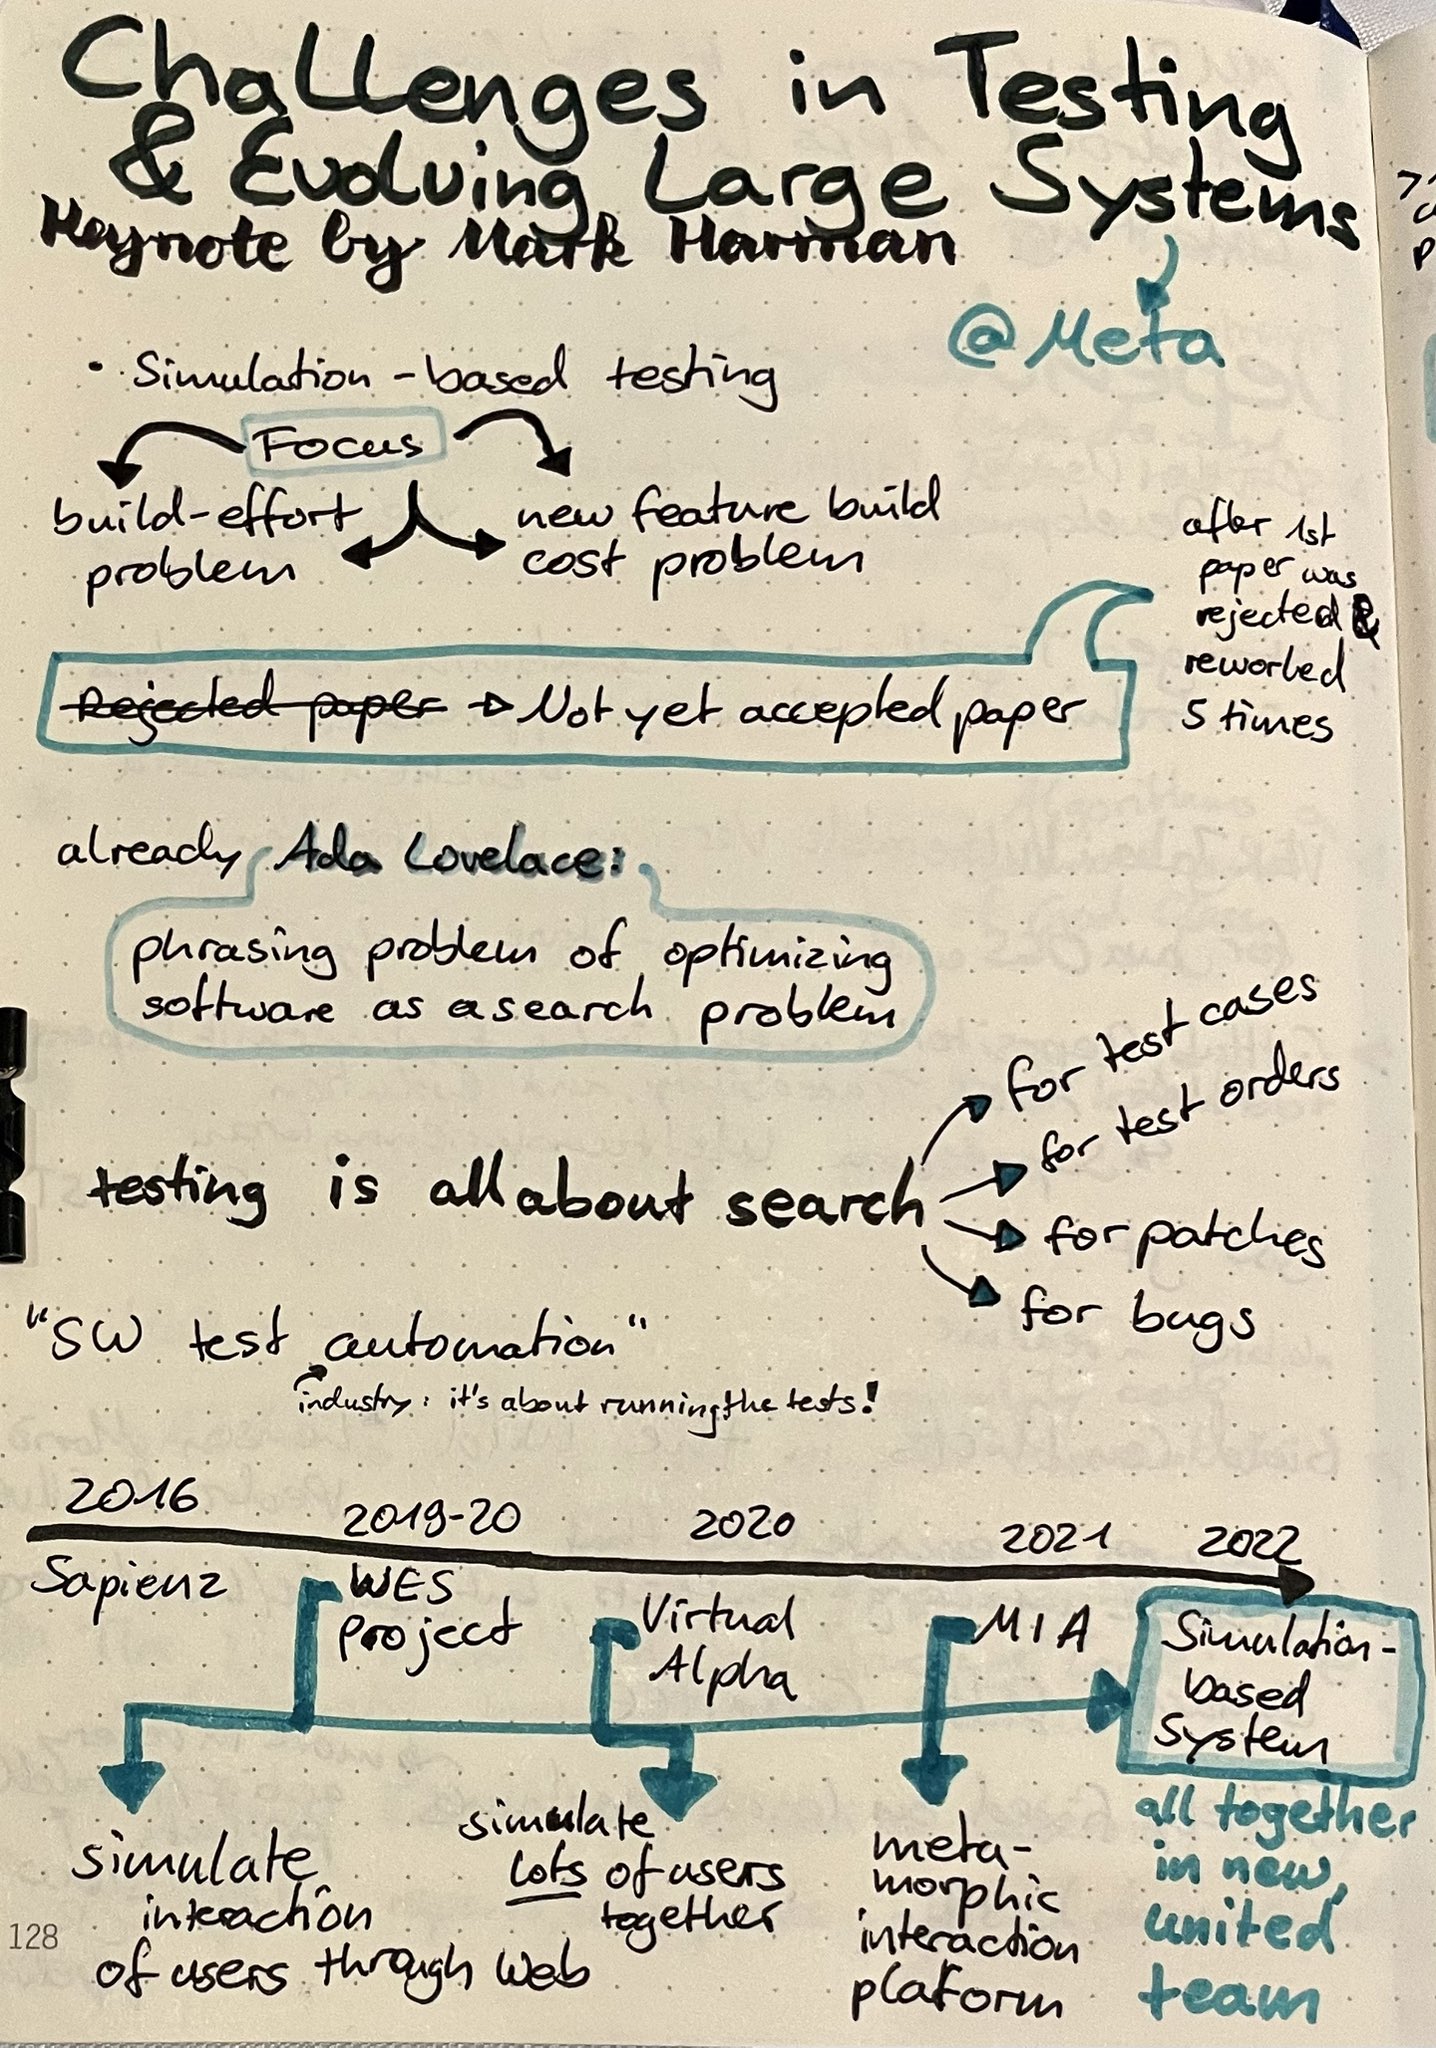 Challenges in Testing
& Evolving Large Systems
Keynote by Mark Harman
@Meta
· Simulation-based testing
Focus
build-effort
problem
new feature build
cost problem
after 1st
paper was
rejected &
reworked
5 times
Rejected paper → Not yet accepted paper
already Ada Lovelace:
phrasing problem of optimizing
software as a search problem
testing is all about search
for test cases
for test orders
for patches
for bugs
"SW test automation"
industry: it's about running the tests!
2016
2019-20
2020
2021
2022
Sapienz
WES
Project
Virtual
Alpha
MIA
Simulation-
based
System
simulate
interaction
of users through Web
simulate
lots of users
together
meta-
morphic
interaction
platform
all together
in new,
united
team
128